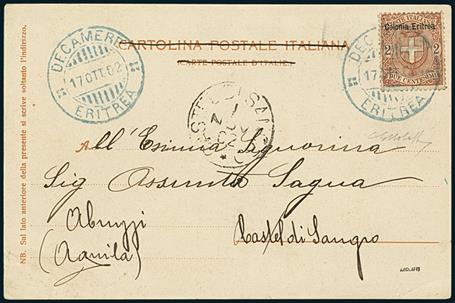 CARTOLINA POSTALE ITALIANA
CARTE POSTALE D'ITALIE
DECAMERE
17 OTT. 02
ERITREA
Colonia Eritrea
2 2
DUE CENTESIMI
DECAMERE
17
ERITREA
CASTEL DI SANGRO
NB. Sul lato anteriore della presente si scrive soltanto l'indirizzo.
All'Esimia Signorina
Sig Assunta Sagua
Abruzzi Castel di Sangro
(Aquila)